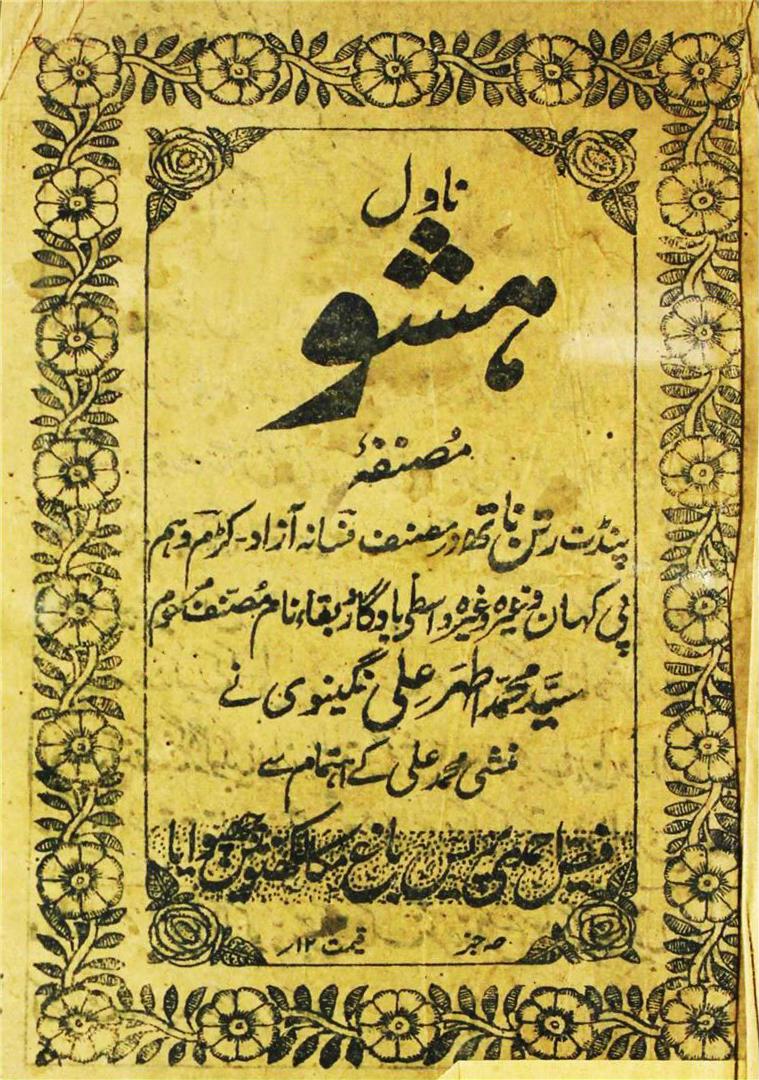 ناول
ہشو
مُصنفہٗ
پنڈت رتن ناتھ در مصنف فسانہ آزاد۔ کڑم دھم
پی کہان وغیرہ وغیرہ واسطی یادگار بقاء نام مُصنف مرحوم
سیَّد محمَّد اطہر علی نگینوی نے
منشی محمد علی کے اہتمام سے
فیض احمدی پریس باغ مکا لکھنؤ میں چھپوایا
جز
قیمت ۱۲؍